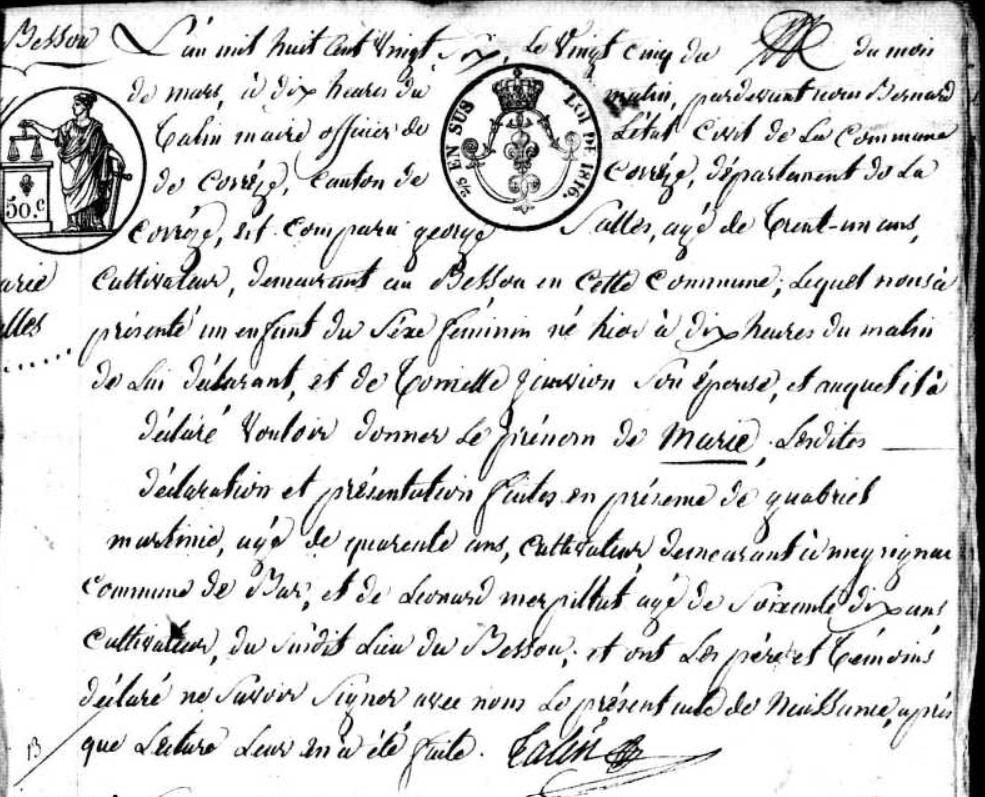 Bessou
L'an mil huit cent vingt six, le vingt cinq du du mois
de mars, à dix heures du matin, pardevant nous Bernard
Talin maire officier de L'état civil de la commune
de corrèze, canton de corrèze, département de La
corrèze, est comparu george Salles, agé de trent-un ans,
cultivateur, demeurant au Bessou en cette commune; lequel nous à
présenté un enfant du sèxe féminin né hier à dix heures du matin
de Lui déclarant, et de Toinette son épouse, et auquel il à
déclaré vouloir donner le prénom de Marie, Lesdites
déclaration et présentation faites en présence de guabriel
martinie, agé de quarente ans, cultivateur, demeurant à meyrignac
commune de Bar, et de Leonard agé de soixante dix ans,
cultivateur, du susdit Lieu du Bessou; et ont Les père et témoins
déclaré ne savoir signer avec nous Le présent acte de naissance, après
que Lecture Leur en à été faite. Talin
arie
alles
50.c
2/5 EN SUS LOI DE 1816.
13